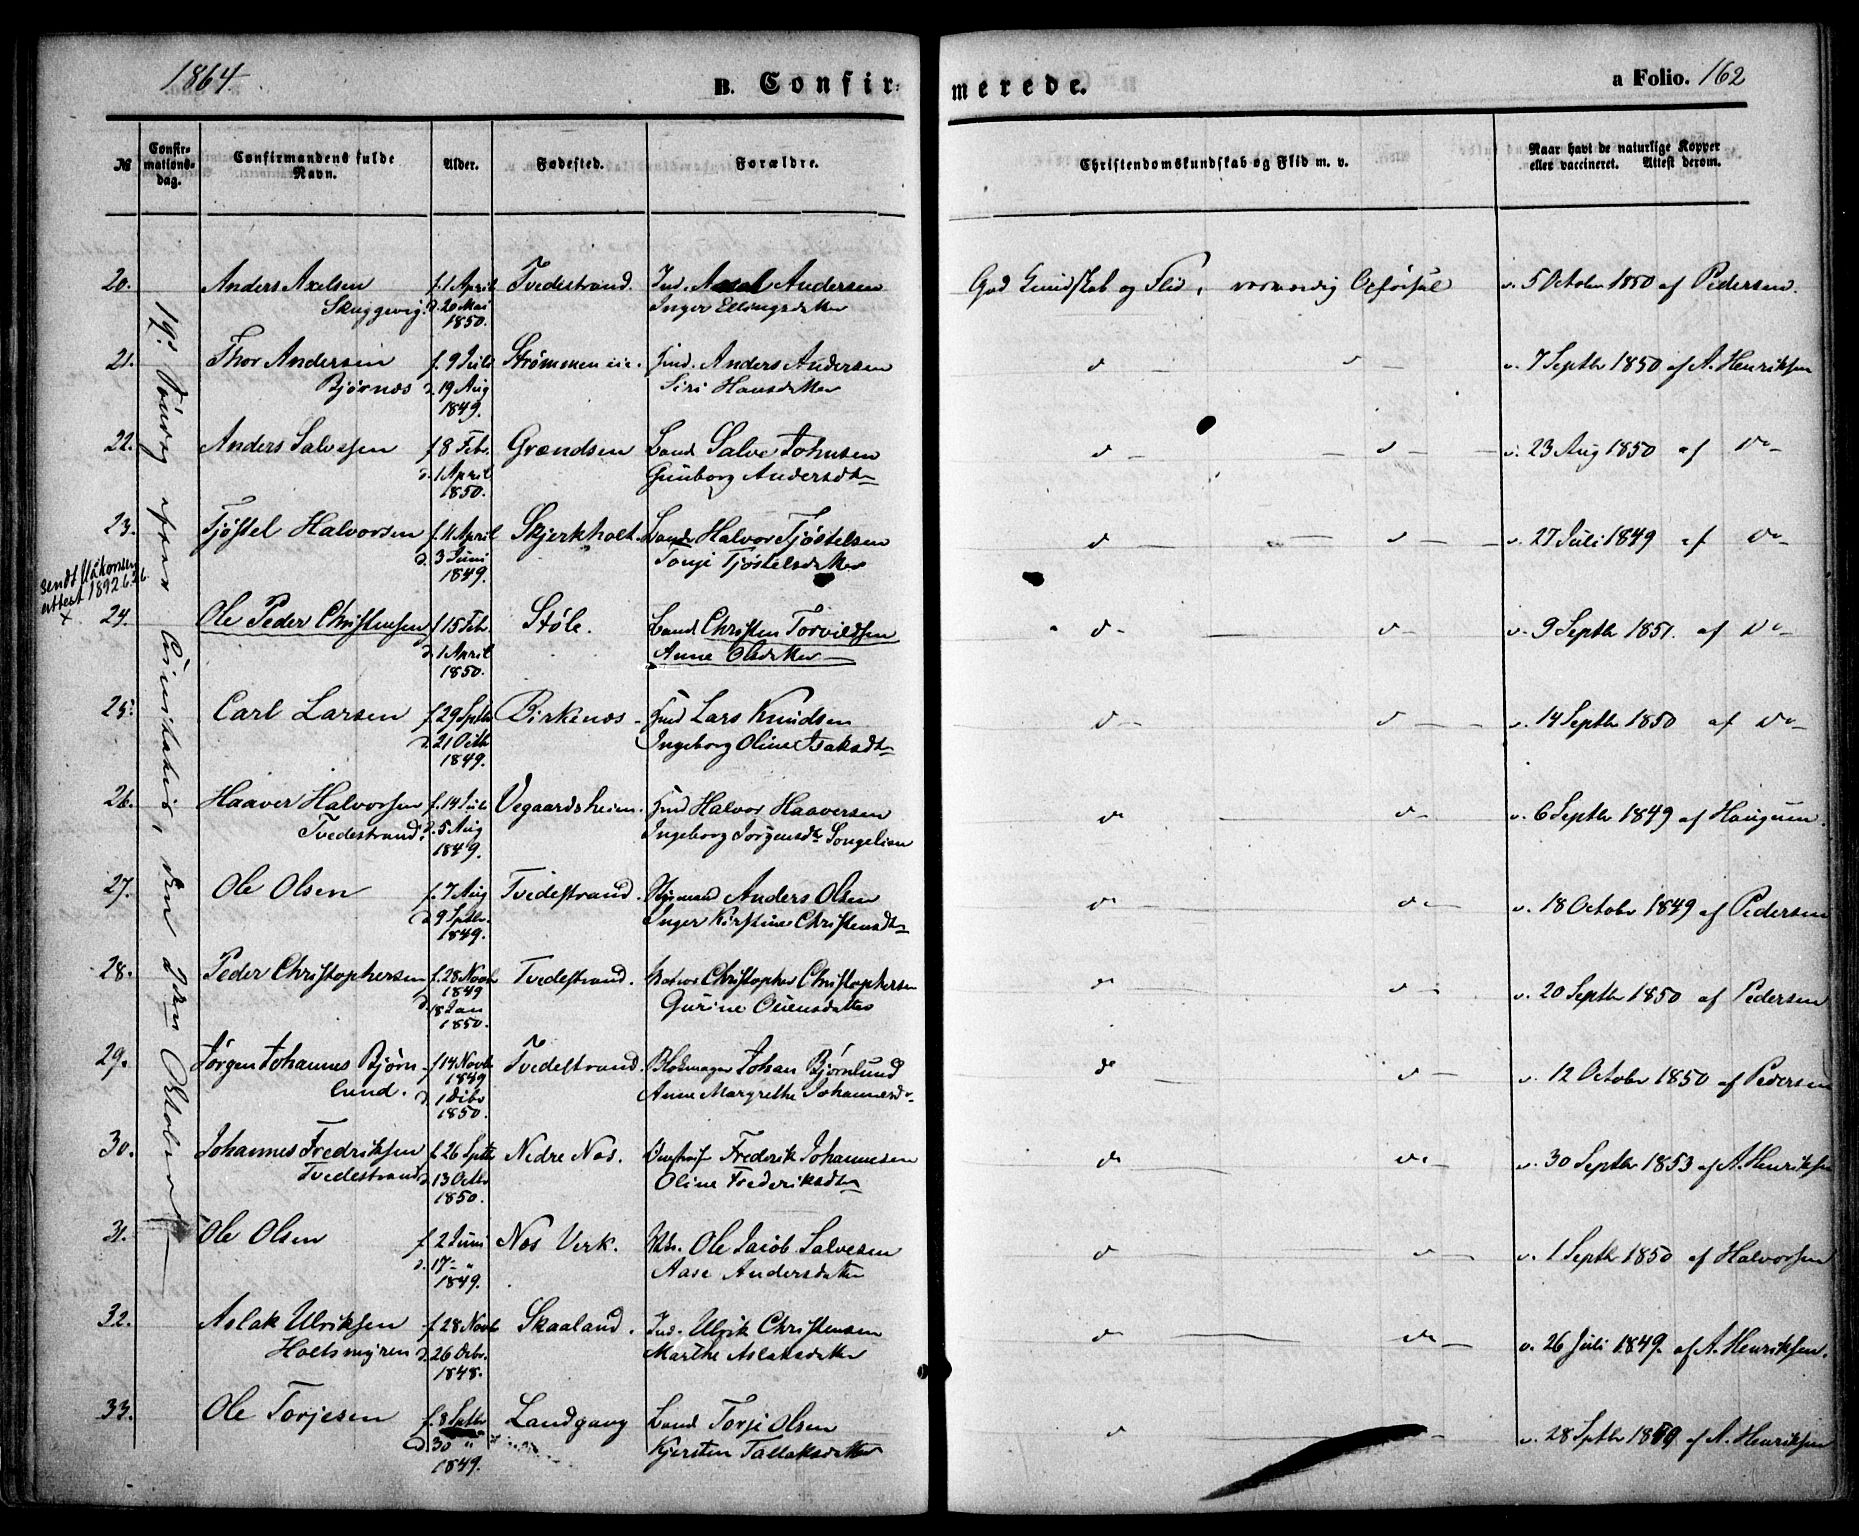 1864. B. Confirmerede. a Folio. 162
№ Confirmationsdag. Confirmandens fulde Navn. Alder. Fødested. Forældre. Christendomskundskab og Flid m. v. Naar havt de naturlige Kopper eller vaccineret. Attest derom.
19d. Søndag efter den Octobr
20. Anders Axelsen f. 1 April Tvedestrand. Ind. Axel Andersen God Kundskab og Flid, v. 5 Octobr 1850 af Pedersen.
Skuggevig. d. 20 Mai Inger Ellingsdatter
1850.
21. Thor Andersen f. 9 Juli Strømmen eie. Hmd. Anders Andersen d v. 7 Septbr 1850 af A. Henriksen
Bjørnæs d. 19 Aug Siri Hansdatter
1849.
22. Anders Salvesen f. 8 Febr. Grændsen Land Salve Johnsen d — v. 23 Aug 1850 af do
d. 1 April Gunborg Andersdtr
1850.
23. Tjøstel Halvorsen f. 11 April Skjerkholt. Halvor Tjøstelsen d — v. 27 Juli 1849 af do
d. 3 Juni Tonje Tjøstelsdatter
1849.
Sendt
attest 1892 6/26.
×
24. Ole Peder Christensen f. 15 Febr. Støle. Land Christen Torvildsen d — v. 9 Septbr 1851. af do
d. 1 April Anne Olsdatter
1850.
25. Carl Larsen f. 29 Septbr Birkenæs Hmd Lars Knudsen d — v. 14 Septbr 1850 af do
d. 21 Octb Ingeborg Oline Isaksdtr
1849.
26. Haaver Halvorsen f. 14 Juli Vegaardsheien. Hmd Halvor Haaversen do — v. 6 Septbr 1849 af Haugum.
Tvedestrand. d. 5 Aug Ingeborg Jørgensdtr Songelien
1849.
27. Ole Olsen f. 7 Aug Tvedestrand. Styrmand Anders Olsen do — v. 18 Octobr 1849 af Pedersen
d. 9 Septbr. Inger Kirstine Christensdtr
1849.
28. Peder Christophersen f. 28 Novbr Tvedestrand. Matros Christopher Christophersen do — v. 20 Septbr 1850 af Pedersen
1849 Gurine Ouensdatter
d. 18 Jan
1850.
29. Jørgen Johannes Bjørn f. 14 Novbr Tvedestrand. Blokmager Johan Bjørnlund do — v. 12 Octobr 1850 af Pedersen
lund. 1849 Anne Margrethe Johannesd.
1850.
30. Johannes Fredriksen f. 26 Septbr Nedre Næs. Frederik Johannesen do — v. 30 Septbr 1853 af A. Henriksen
Tvedestrand d. 13 Octbr Oline Frederiksdtr
1850.
31. Ole Olsen f. 2 Juni Næs Verk. Ole Jacob Salvesen d — v. 1 Septbr 1850 af Halvorsen
d. 17 — " Aase Andersdatter
1849.
32. Aslak Ulriksen f. 28 Novbr Skaaland. Ind. Ulrik Christensen do — v. 26 Juli 1849. af A. Henriksen.
Holtsmyren d. 26 Debr. Marthe Aslaksdatter
1848.
33. Ole Torjesen f. 8 Septbr Landgang Land Torje Olsen d — v. 28 Septbr 1849 af A. Henriksen
d. 30 " Kjersten Tallaksdatter
1849.